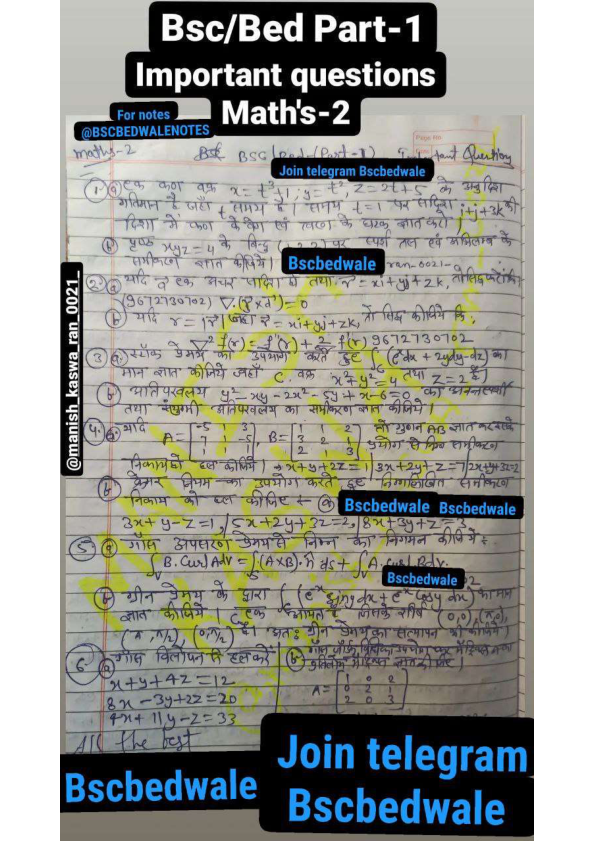 Bsc/Bed Part-1
Important questions
Math's-2
For notes
@BSCBEDWALENOTES
Maths-2 BSC/Bed (Part-1) Important Question
Join telegram Bscbedwale
1. a एक कण वक्र x = t³+1, y = t² z = 2t+5 के अनुदिश
गतिमान है जहाँ t समय है। समय t=1 पर सदिश i+j+3k की
दिशा में कण के वेग एवं त्वरण के घटक ज्ञात करो।
b पृष्ठ xyz = 4 के बिन्दु पर स्पर्श तल एवं अभिलम्ब के
समीकरण ज्ञात कीजिये। Bscbedwale ran-0021-
2. a यदि a एक अचर सदिश है तथा r = xi+yj+zk, तो सिद्ध करो कि
(9672130702) ∇.(r×a) = 0
b यदि r = |r| जहाँ r = xi+yj+zk, तो सिद्ध कीजिये कि;
∇² f(r) = f"(r) + 2/r f'(r) 9672130702
3 a. स्टॉक प्रमेय का उपयोग करते हुए ∫ (eˣdx + 2ydy - dz) का
मान ज्ञात कीजिये जहाँ C, वक्र x²+y²=4 तथा z=2 है।
b अतिपरवलय y²-xy-2x²-5y+x-6=0 का अनन्तस्पर्शी
तथा संयुग्मी अतिपरवलय का समीकरण ज्ञात कीजिये।
4. a. यदि A = [-5 1 3, 7 1 -5, 1 -1 1], B = [1 1 2, 3 2 1, 2 1 3] तो गुणन AB ज्ञात कर इसके
प्रयोग से निम्न समीकरण
निकाय को हल कीजिये। → x+y+2z=1 | 3x+2y+z=7 | 2x+y+3z=2
b क्रैमर नियम का उपयोग करते हुए निम्नलिखित समीकरण
निकाय को हल कीजिए - Bscbedwale Bscbedwale
3x+y-z=1, 5x+2y+3z=2, 8x+3y+z=3
5 a गॉस अपसरण प्रमेय से निम्न का निगमन कीजिये :
∫ B.Curl A dv = ∫ (A×B).n ds + ∫ A.curl B dv.
Bscbedwale
b ग्रीन प्रमेय के द्वारा ∫ (e⁻ˣ siny dx + e⁻ˣ cosy dx) का मान
ज्ञात कीजिये। C एक आयत है जिसके शीर्ष (0,0), (π,0),
(π, π/2) (0, π/2) है। अतः ग्रीन प्रमेय का सत्यापन भी कीजिये।
6. a गॉस विलोपन से हल करो
x+y+4z=12
8x-3y+2z=20
4x+11y-z=33
b गॉस जॉर्डन विधि का उपयोग कर
प्रतिलोम मैट्रिक्स ज्ञात कीजिए।
A = [1 0 2, 0 2 1, 2 0 3]
All the best
@manish_kaswa_ran_0021_
Bscbedwale
Join telegram
Bscbedwale